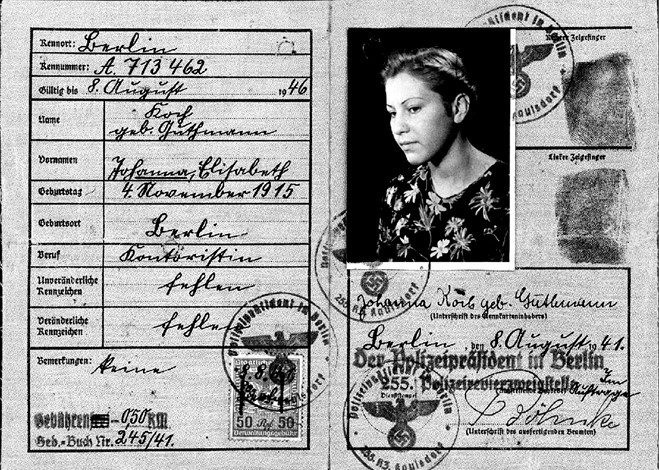 Kennort: Berlin
Kennummer: A. 713 462
Gültig bis 8. August 1946
Name Koch
geb. Guthmann
Vornamen Johanna, Elisabeth
Geburtstag 4. November 1915
Geburtsort Berlin
Beruf Kontoristin
Unveränderliche
Kennzeichen fehlen
Veränderliche
Kennzeichen fehlen
Bemerkungen: Keine
Gebühren 0,50 RM.
Geb.-Buch Nr. 245/41.
8.8.41
50 Rpf 50
Verwaltungsgebühr
Der Polizeipräsident in Berlin
Kaulsdorf
Zeigefinger
Linker Zeigefinger
Johanna Koch geb. Guthmann
(Unterschrift des Kennkarteninhabers)
Berlin, den 8. August 1941.
Der Polizeipräsident in Berlin
255. Polizeirevierzweigstelle
Dienststempel
Im
Auftrage
(Unterschrift des ausfertigenden Beamten)
Der Polizeipräsident in Berlin